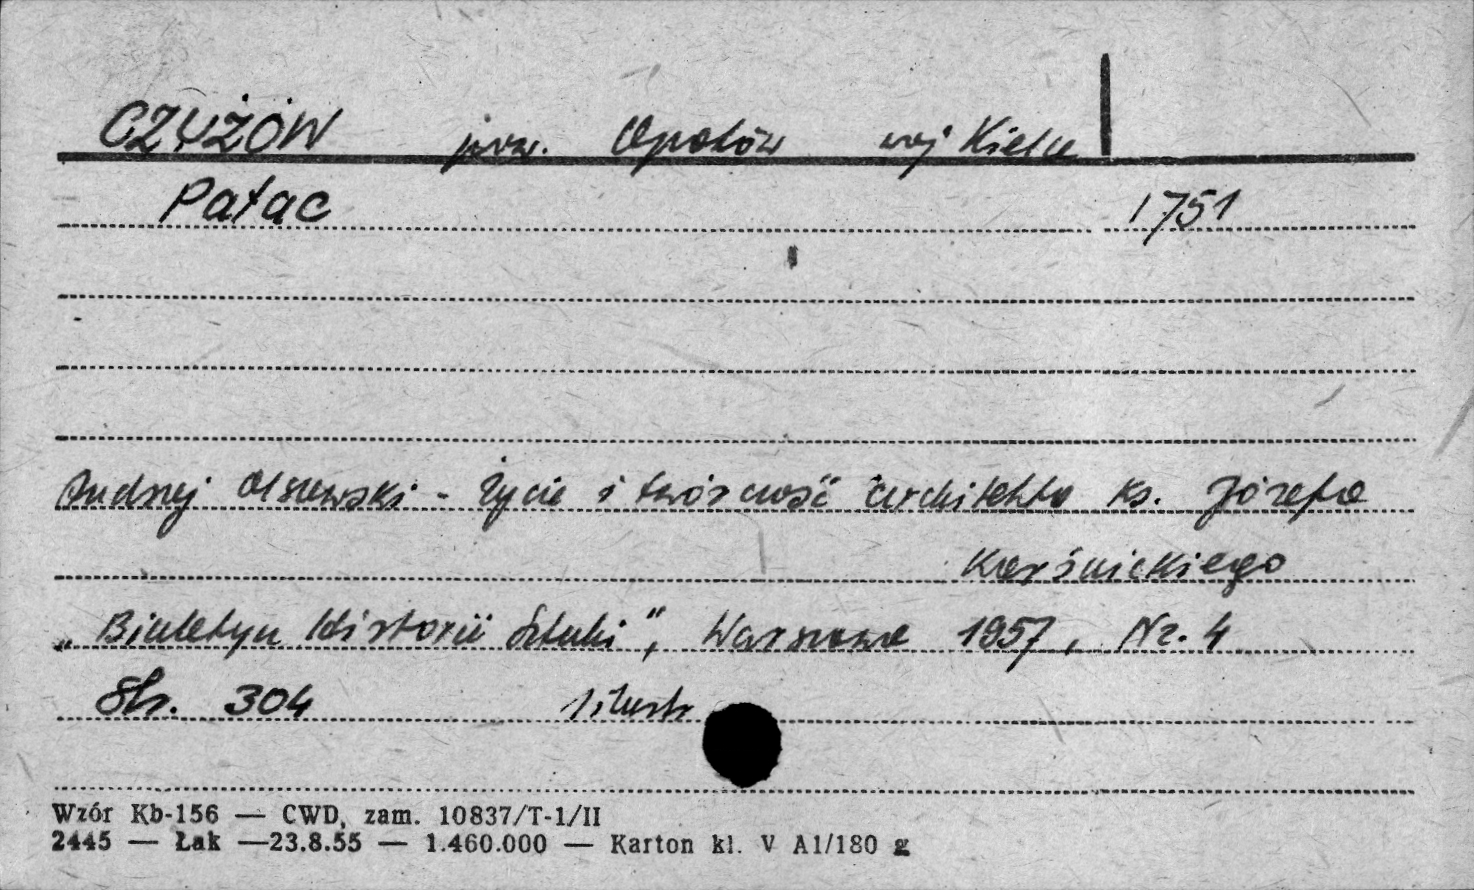 CZYŻÓW pow. Opatów woj Kielce
Pałac 1751
Andrzej Olszewski - Życie i twórczość architekta ks. Józefa
Karśnickiego
„Biuletyn Historii Sztuki", Warszawa 1957, Nr. 4
Str. 304 1 ilustr
Wzór Kb-156 — CWD, zam. 10837/T-1/II
2445 — Łak —23.8.55 — 1.460.000 — Karton kl. V A1/180 g